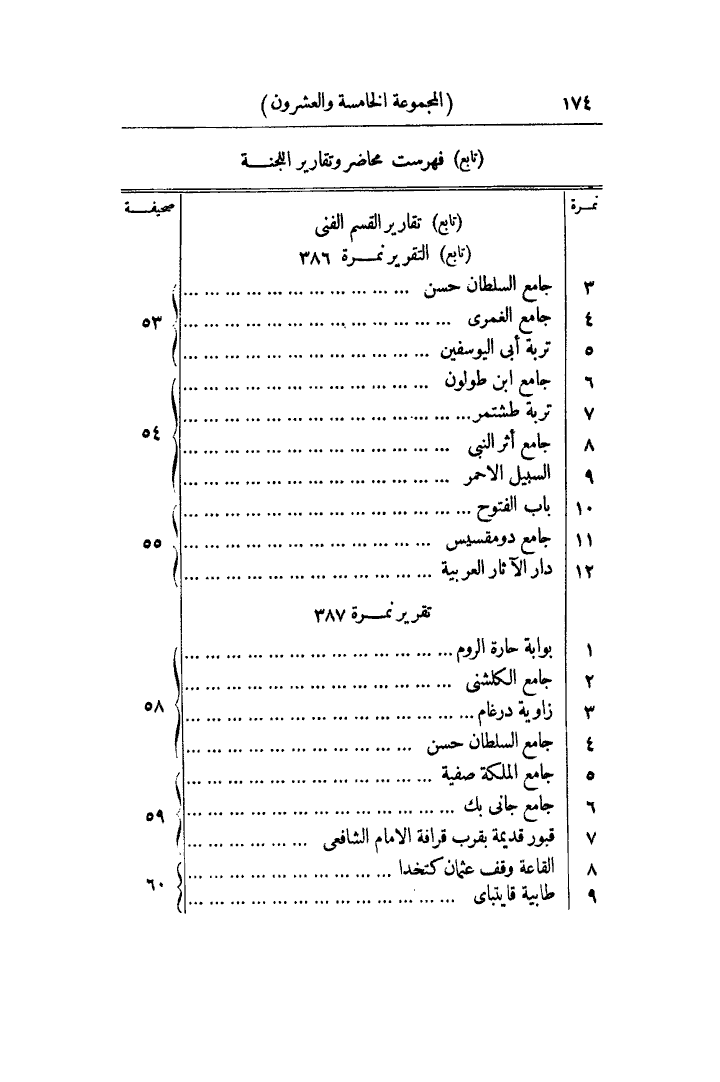 ١٧٤ (المجموعة الخامسة والعشرون)
(تابع) فهرست محاضر وتقارير اللجنة
نمرة صحيفة
(تابع) تقارير القسم الفنى
(تابع) التقرير نمرة ٣٨٦
٣ جامع السلطان حسن ... ... ... ... ... ... ... ... ... ... ...
٤ جامع الغمرى ... ... ... ... ... ... ... ... ... ... ... ... ... ٥٣
٥ تربة أبى اليوسفين ... ... ... ... ... ... ... ... ... ... ... ...
٦ جامع ابن طولون ... ... ... ... ... ... ... ... ... ... ... ...
٧ تربة طشتمر ... ... ... ... ... ... ... ... ... ... ... ... ... ... ٥٤
٨ جامع أثر النبى ... ... ... ... ... ... ... ... ... ... ... ... ...
٩ السبيل الاحمر ... ... ... ... ... ... ... ... ... ... ... ... ...
١٠ باب الفتوح ... ... ... ... ... ... ... ... ... ... ... ... ... ...
١١ جامع دومقسيس ... ... ... ... ... ... ... ... ... ... ... ... ٥٥
١٢ دار الآثار العربية ... ... ... ... ... ... ... ... ... ... ... ...
تقرير نمرة ٣٨٧
١ بوابة حارة الروم ... ... ... ... ... ... ... ... ... ... ... ... ...
٢ جامع الكلشنى ... ... ... ... ... ... ... ... ... ... ... ... ...
٣ زاوية درغام ... ... ... ... ... ... ... ... ... ... ... ... ... ... ٥٨
٤ جامع السلطان حسن ... ... ... ... ... ... ... ... ... ... ...
٥ جامع الملكة صفية ... ... ... ... ... ... ... ... ... ... ... ...
٦ جامع جانى بك ... ... ... ... ... ... ... ... ... ... ... ... ... ٥٩
٧ قبور قديمة بقرب قرافة الامام الشافعى ... ... ... ... ... ...
٨ القاعة وقف عثمان كتخدا ... ... ... ... ... ... ... ... ... ... ٦٠
٩ طابية قايتباى ... ... ... ... ... ... ... ... ... ... ... ... ...